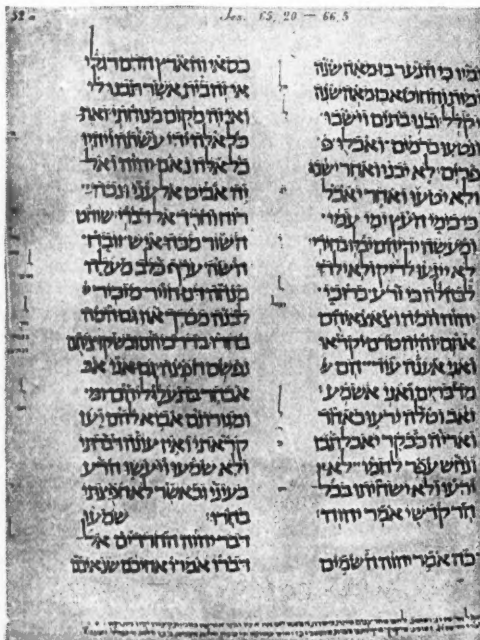 52 a
Jes. 65, 20 — 66,5
ימיו כי הנער בן מאה שנה
ימות והחוטא בן מאה שנה
יקלל ובנו בתים וישבו
ונטעו כרמים ואכלו פ
פרים לא יבנו ואחר ישב
ולא יטעו ואחר יאכל
כי כימי העץ ימי עמי
ומעשה ידיהם יבלו בחירי
לא ייגעו לריק ולא ילדו
לבהלה כי זרע ברוכי
יהוה המה וצאצאיהם
אתם והיה טרם יקראו
ואני אענה עוד הם מ
מדברים ואני אשמע
זאב וטלה ירעו כאחד
ואריה כבקר יאכל תבן
ונחש עפר לחמו לא י
ירעו ולא ישחיתו בכל
הר קדשי אמר יהוה
כה אמר יהוה השמים
כסאי והארץ הדם רגלי
אי זה בית אשר תבנו לי
ואי זה מקום מנוחתי ואת
כל אלה ידי עשתה ויהיו
כל אלה נאם יהוה ואל
זה אביט אל עני ונכה
רוח וחרד על דברי שוחט
השור מכה איש זובח
השה ערף כלב מעלה
מנחה דם חזיר מזכיר
לבנה מברך און גם המה
בחרו בדרכיהם ובשקוציהם
נפשם חפצה גם אני אב
אבחר בתעלליהם ומ
ומגורתם אביא להם יען
קראתי ואין עונה דברתי
ולא שמעו ויעשו הרע
בעיני ובאשר לא חפצתי
בחרו שמעו
דבר יהוה החרדים אל
דברו אמרו אחיכם שנאיכם